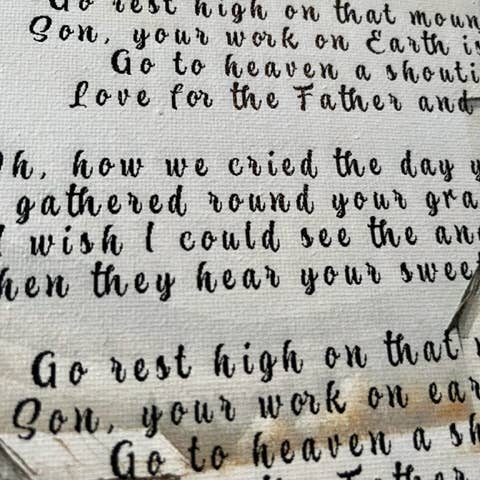 Go rest high on that moun
Son, your work on Earth is
Go to heaven a shouti
Love for the Father and
Oh, how we cried the day y
gathered round your gra
I wish I could see the ang
hen they hear your sweet
Go rest high on that
Son, your work on ear
Go to heaven a sh
Father